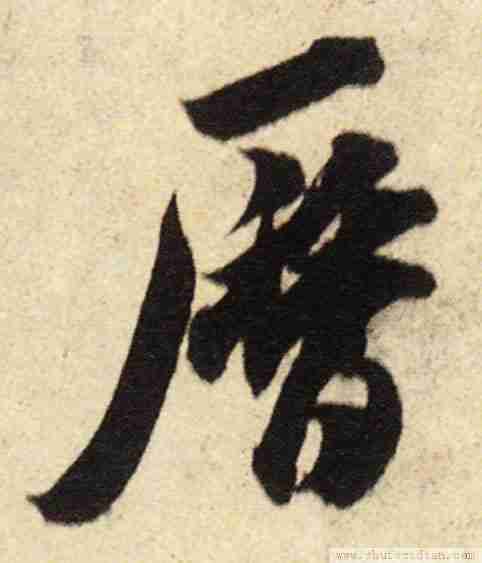 曆
www.shufazidian.com